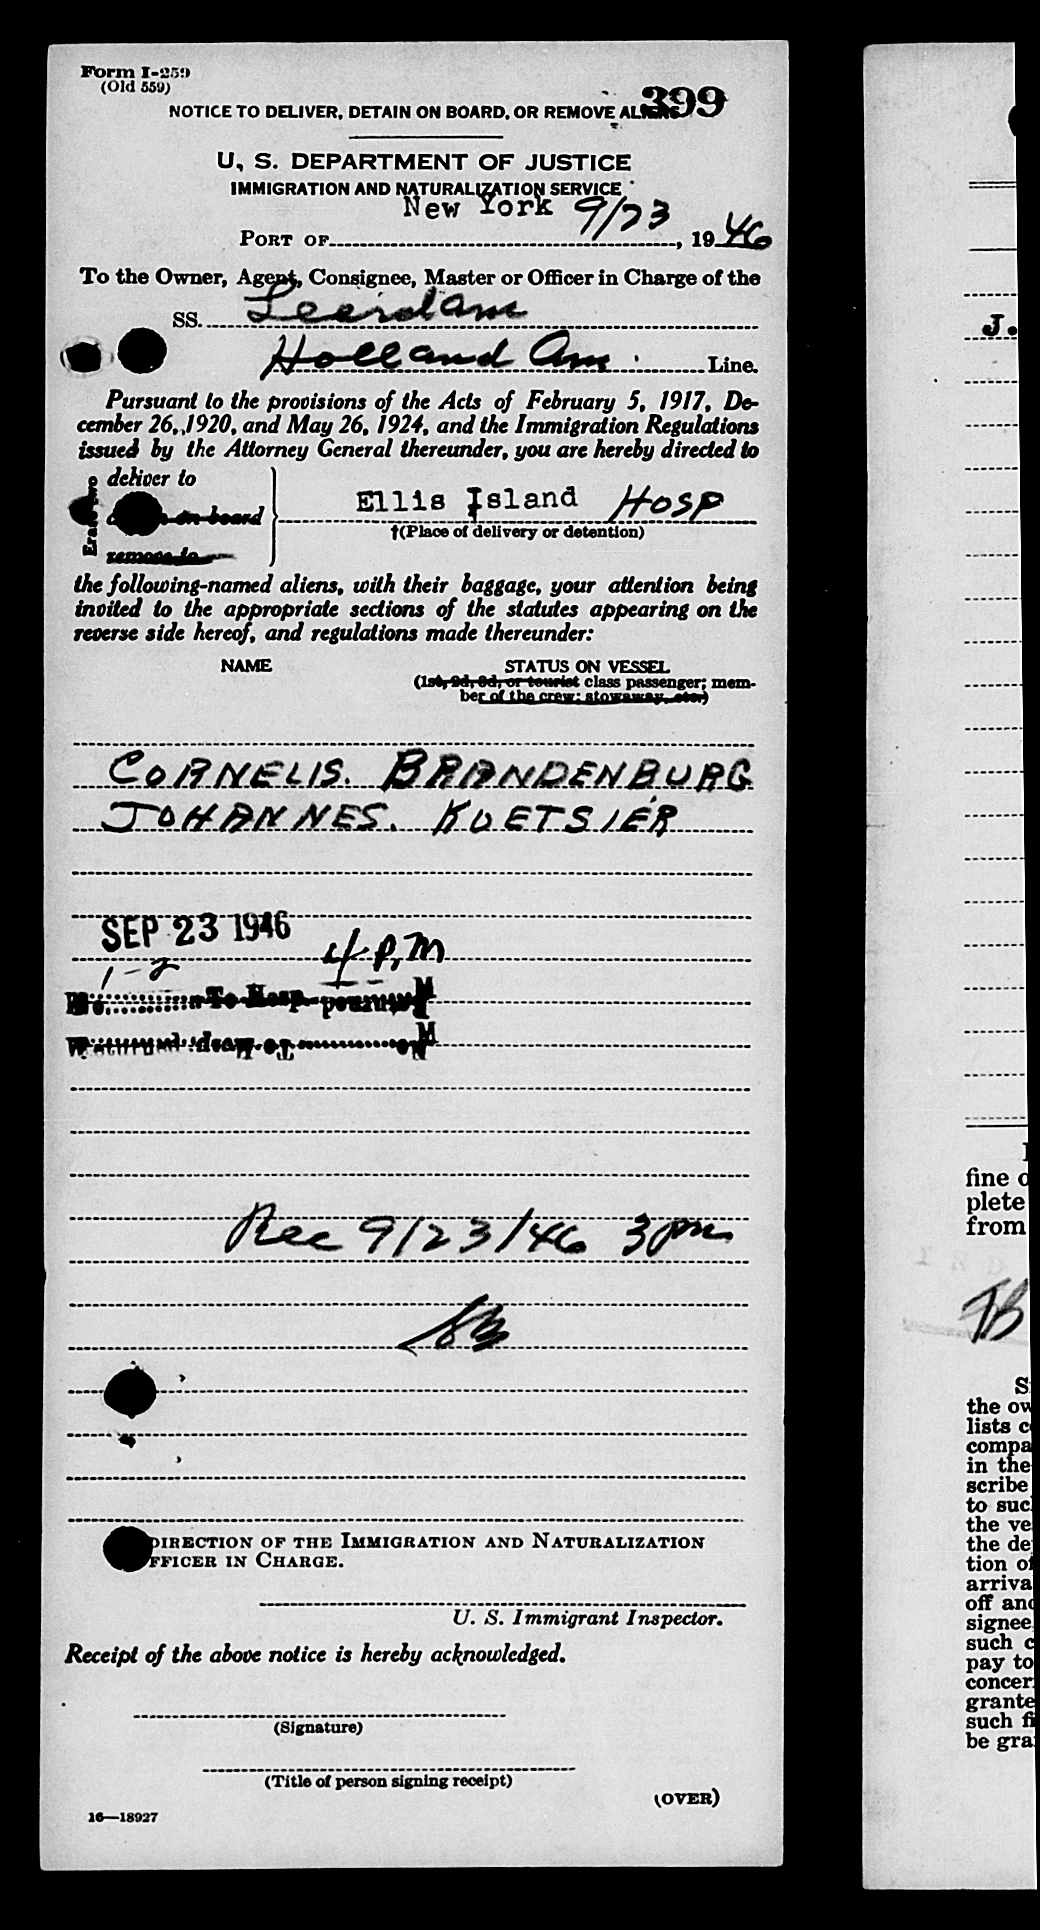 Form I-259
(Old 559)
399
NOTICE TO DELIVER, DETAIN ON BOARD, OR REMOVE ALIENS
U. S. DEPARTMENT OF JUSTICE
IMMIGRATION AND NATURALIZATION SERVICE
New York 9/23
PORT OF , 1946
To the Owner, Agent, Consignee, Master or Officer in Charge of the
SS. Leerdam
Holland Am. Line.
Pursuant to the provisions of the Acts of February 5, 1917, De-
cember 26, 1920, and May 26, 1924, and the Immigration Regulations
issued by the Attorney General thereunder, you are hereby directed to
Erase two
deliver to
on board
remove to
Ellis Island HOSP
†(Place of delivery or detention)
the following-named aliens, with their baggage, your attention being
invited to the appropriate sections of the statutes appearing on the
reverse side hereof, and regulations made thereunder:
NAME STATUS ON VESSEL
(1st, 2d, 3d, or tourist class passenger; mem-
ber of the crew; stowaway, etc.)
CORNELIS. BRANDENBURG
JOHANNES. KOETSIER
SEP 23 1946
4 P.M
1-2
To Hosp
Rec 9/23/46 3pm
DIRECTION OF THE IMMIGRATION AND NATURALIZATION
FFICER IN CHARGE.
U. S. Immigrant Inspector.
Receipt of the above notice is hereby acknowledged.
(Signature)
(Title of person signing receipt)
(OVER)
16—18927
J.
fine
plete
from
the
lists
compa
in the
scribe
to suc
the ve
the de
tion
arriva
off and
signee
such
pay to
concer
grante
such
be gra